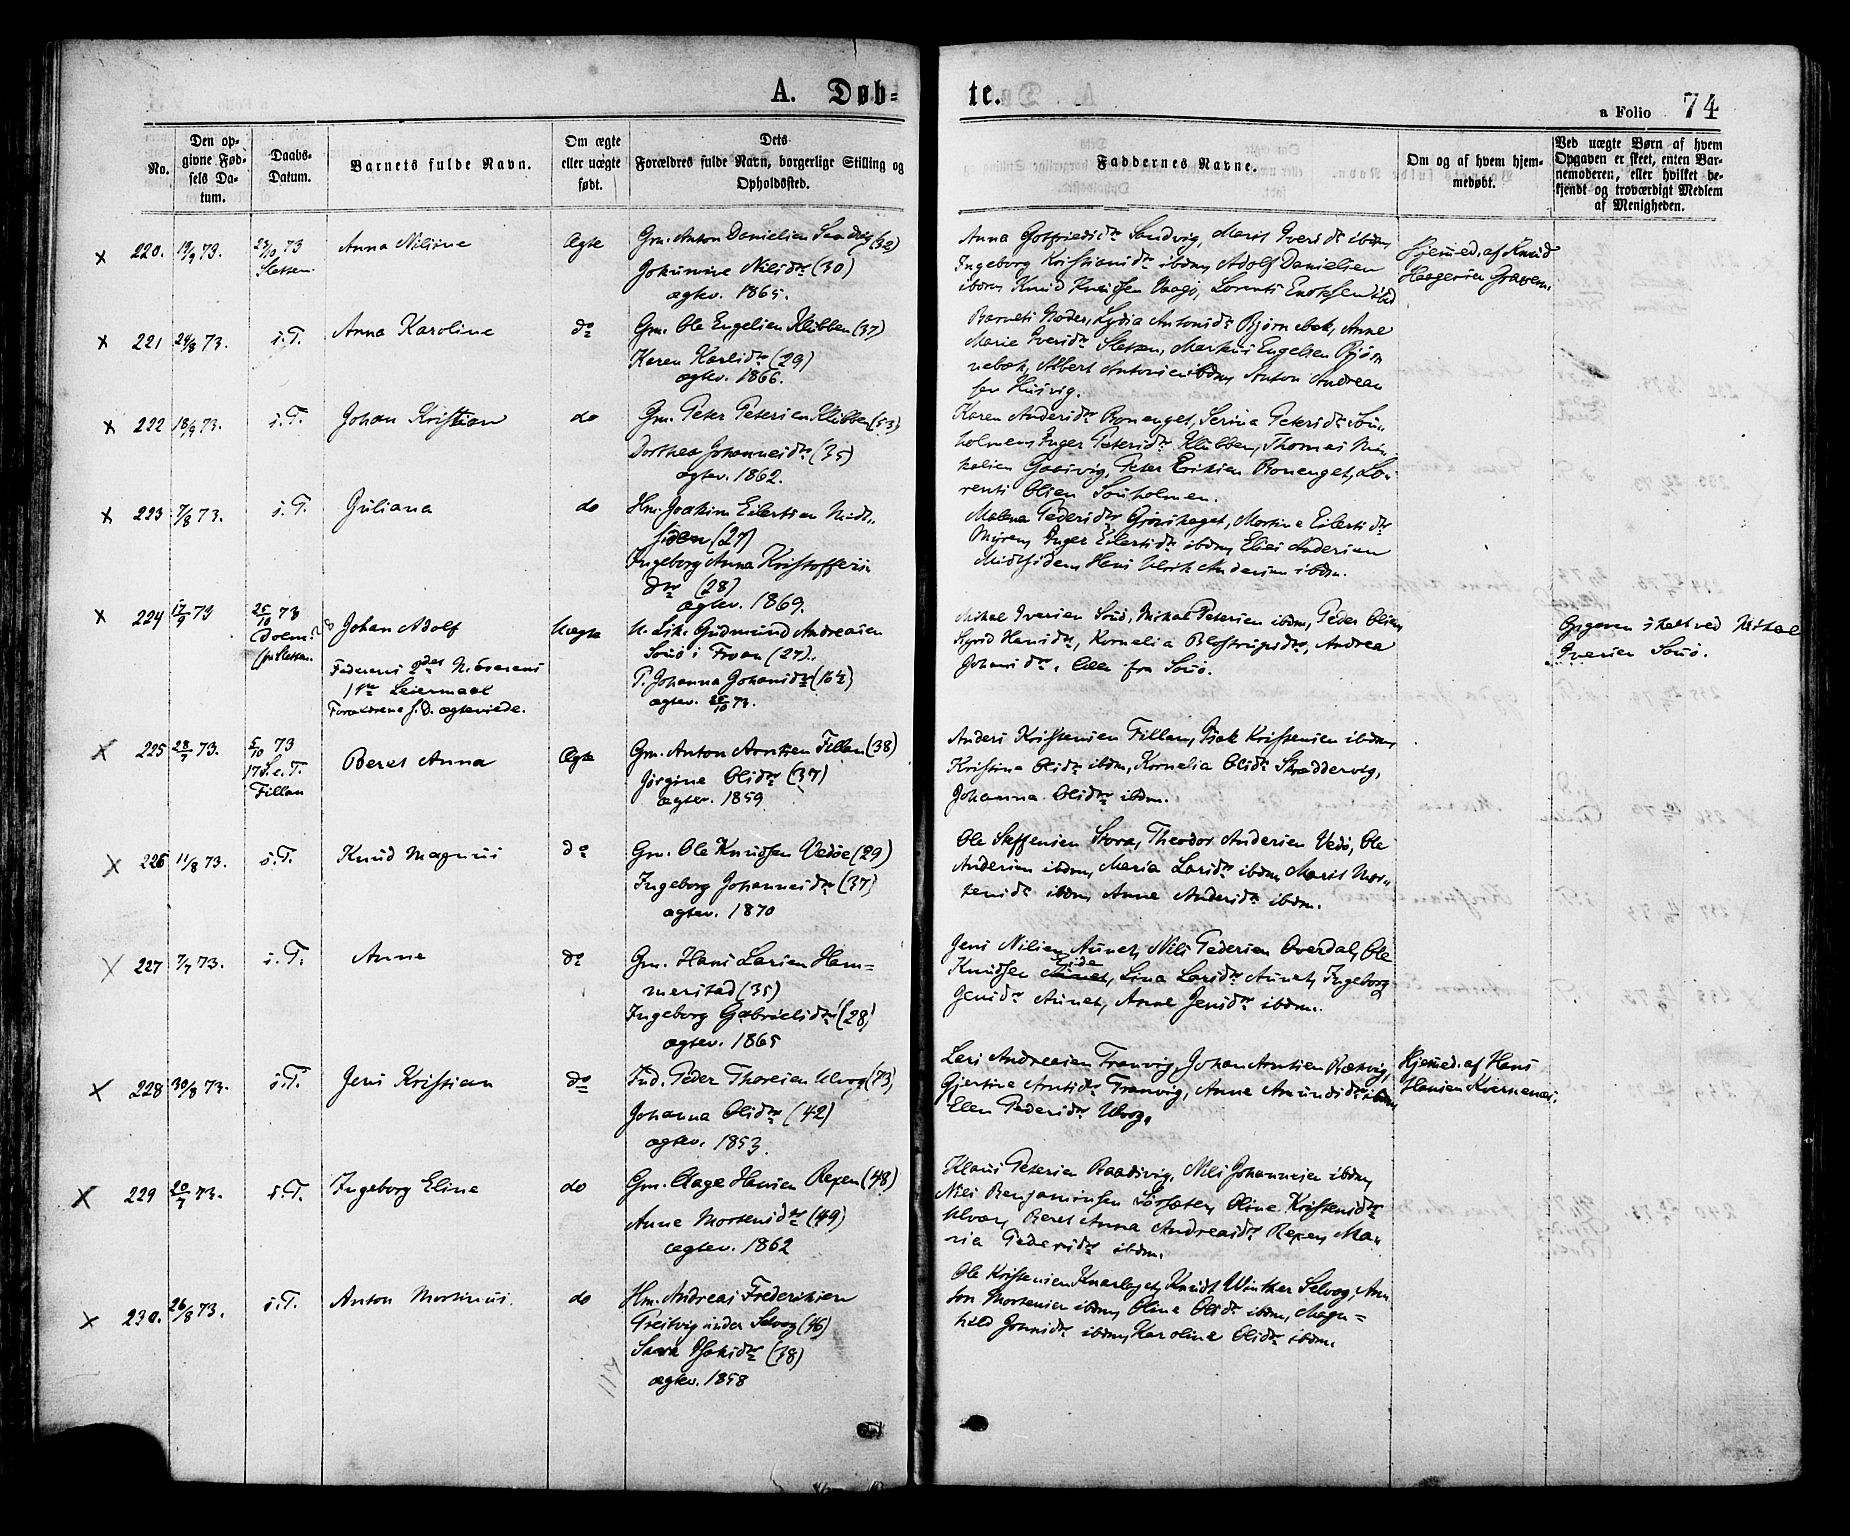 A. Døb=
te.
a Folio 74
No.
Den op-
givne Fød-
sels Da-
tum.
Daabs-
Datum.
Barnets fulde Navn.
Om ægte
eller uægte
født.
Dets
Forældres fulde Navn, borgerlige Stilling og
Opholdssted.
Faddernes Navne.
Om og af hvem hjem-
medøbt.
Ved uægte Børn af hvem
Opgaven er skeet, enten Bar-
nemoderen, eller hvilket be-
kjendt og troværdigt Medlem
af Menigheden.
x 220. 19/9 73.
Anna Niline
Ægte
Gm. Anton Danielsen Sandvig (32)
Nilsdr (30)
ægtev. 1865.
Anna Gotfriedsdr Sandvig, Marit Iversdr ibdm,
Ingeborg Kristiansdr ibdm, Adolf Danielsen
ibdm, Knud Knudsen Vaagø, Lorents Enoksen ibd
Hjemmed. af Knud
x 221 24/8 73. s. T.
Anna Karoline
do
Gm. Ole Engelsen Klubben (37)
Karen Karlsdr (29)
ægtev. 1866.
Barnets Moder, Lydia Antonsdr Bjørnebæk, Anne
Marie Iversdr Slatsen, Markus Engelsen Bjør
nebæk, Albert Antonsen ibdm, Anton Andrea
sen Husvig.
x 222 18/9 73. s. T.
Johan Kristian
do
Gm. Peter Petersen Klubben (53)
Dorthea Johannesdr (35)
ægtev. 1862.
Karen Andersdr Bonenget, Serina Petersdr Sou-
holmen, Inger Petersdr Klubben, Thomas Mi
kalsen Gaasvig, Peter Eriksen Bonenget, Lo-
rents Olsen Souholmen.
x 223 7/8 73. s. T.
Guliana
do
Hm. Joakim Eilertsen Midt-
siden (27)
Ingeborg Anna Kristoffers
dr (28)
ægtev. 1869.
Malena Pedersdr, Martine Eilertsdr
Myren, Inger Eilertsdr ibdm, Elias Andersen
Midtsiden, Hans Ulrik Andersen ibdm.
x 224 17/9 73
25/10 73
Dolm.
Johan Adolf
Faderens 2det N. Eierens
1ste Leiermaal
Forældrene s. D. ægteviede.
Uægte
U. Sk. Gudmund Andreasen
Souø i Froan (27).
P. Johanna Johansdr (16½)
ægtev. 25/10 73.
Mikal Iversen Souø, Mikal Petersen ibdm, Peder Olsen
Sigrid Hansdr, Kornelia Andrea
Johansdr. Alle fra Souø.
Opgaven skeet ved Mikal
Iversen Souø.
x 225 28/7 73.
5/10 73
17 S. e. T.
Fillan
Beret Anna
Ægte
Gm. Anton Arntsen Fillan (38)
Jørgine Olsdr (37)
ægtev. 1859
Anders Kristensen Fillan, Isak Kristensen ibdm,
Kristina Olsdr ibdm, Kornelia Olsdr Skræddervig,
Johanna Olsdr ibdm.
x 226 11/8 73. s. T.
Knud Magnus
do
Gm. Ole Knudsen Vedøe (29)
Ingeborg Johannesdr (37)
ægtev. 1870
Ole Steffensen Storø, Theodor Andersen Vedø, Ole
Andersen ibdm, Maria Larsdr ibdm, Marit Mor-
tensdr ibdm, Anne Andersdr ibdm.
x 227 7/7 73. s. T.
Anne
do
Gm. Hans Larsen Ham-
merstad (35)
Ingeborg Gabrielsdr (28)
ægtev. 1865
Jens Nilsen Aunet, Nils Pedersen Overdal, Ole
Knudsen Eide, Lina Larsdr Aunet, Ingeborg
Jensdr Aunet, Anne Jensdr ibdm.
x 228 30/8 73. s. T.
Jens Kristian
do
Ind. Peder Thoresen Ulvog (73)
Johanna Olsdr (42)
ægtev. 1853.
Lars Andreasen Tranvig, Johan Arntsen
Gjertine Arntsdr Tranvig, Anne Amundsdr ibdm
Elen Pedersdr Ulvog.
Hjemmed. af Hans
Hansen Kvernenæs.
x 229 20/7 73. s. T.
Ingeborg Eline
do
Gm. Aage Hansen Repen (48)
Anne Mortensdr (49)
ægtev. 1862
Klaus Petersen Raadvig, Nils Johannesen ibdm,
Nils Benjaminsen Sørsæter, Oline Kristensdr
Ulvøen, Beret Anna Andreasdr Repen, Ma-
ria Pedersdr ibdm.
x 230. 26/8 73. s. T.
Anton Martinus.
do
Hm. Andreas Frederiksen
under Selvog (46)
Isaksdr (38)
ægtev. 1858
Ole Kristensen Knarlaget, Knudt Winther Selvog, An
ton Mortensen ibdm, Oline Olsdr ibdm, Magn=
hild Jonsdr ibdm, Karoline Olsdr ibdm.
117